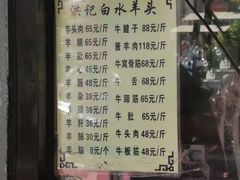 洪记白水羊头
羊头肉 65元/斤 牛腱子 88元/斤
羊眼 65元/斤 酱羊肉 118元/斤
羊肚 65元/斤 牛窝骨筋 58元/斤
羊心 45元/斤 牛舌 68元/斤
羊肠 48元/斤 牛杂 48元/斤
羊杂 38元/斤 牛蹄筋 65元/斤
羊蹄 36元/斤 牛肚 65元/斤
羊肝 36元/斤 牛头肉 48元/斤
羊肺 30元/斤 牛板筋 48元/斤
羊脑 8元/个